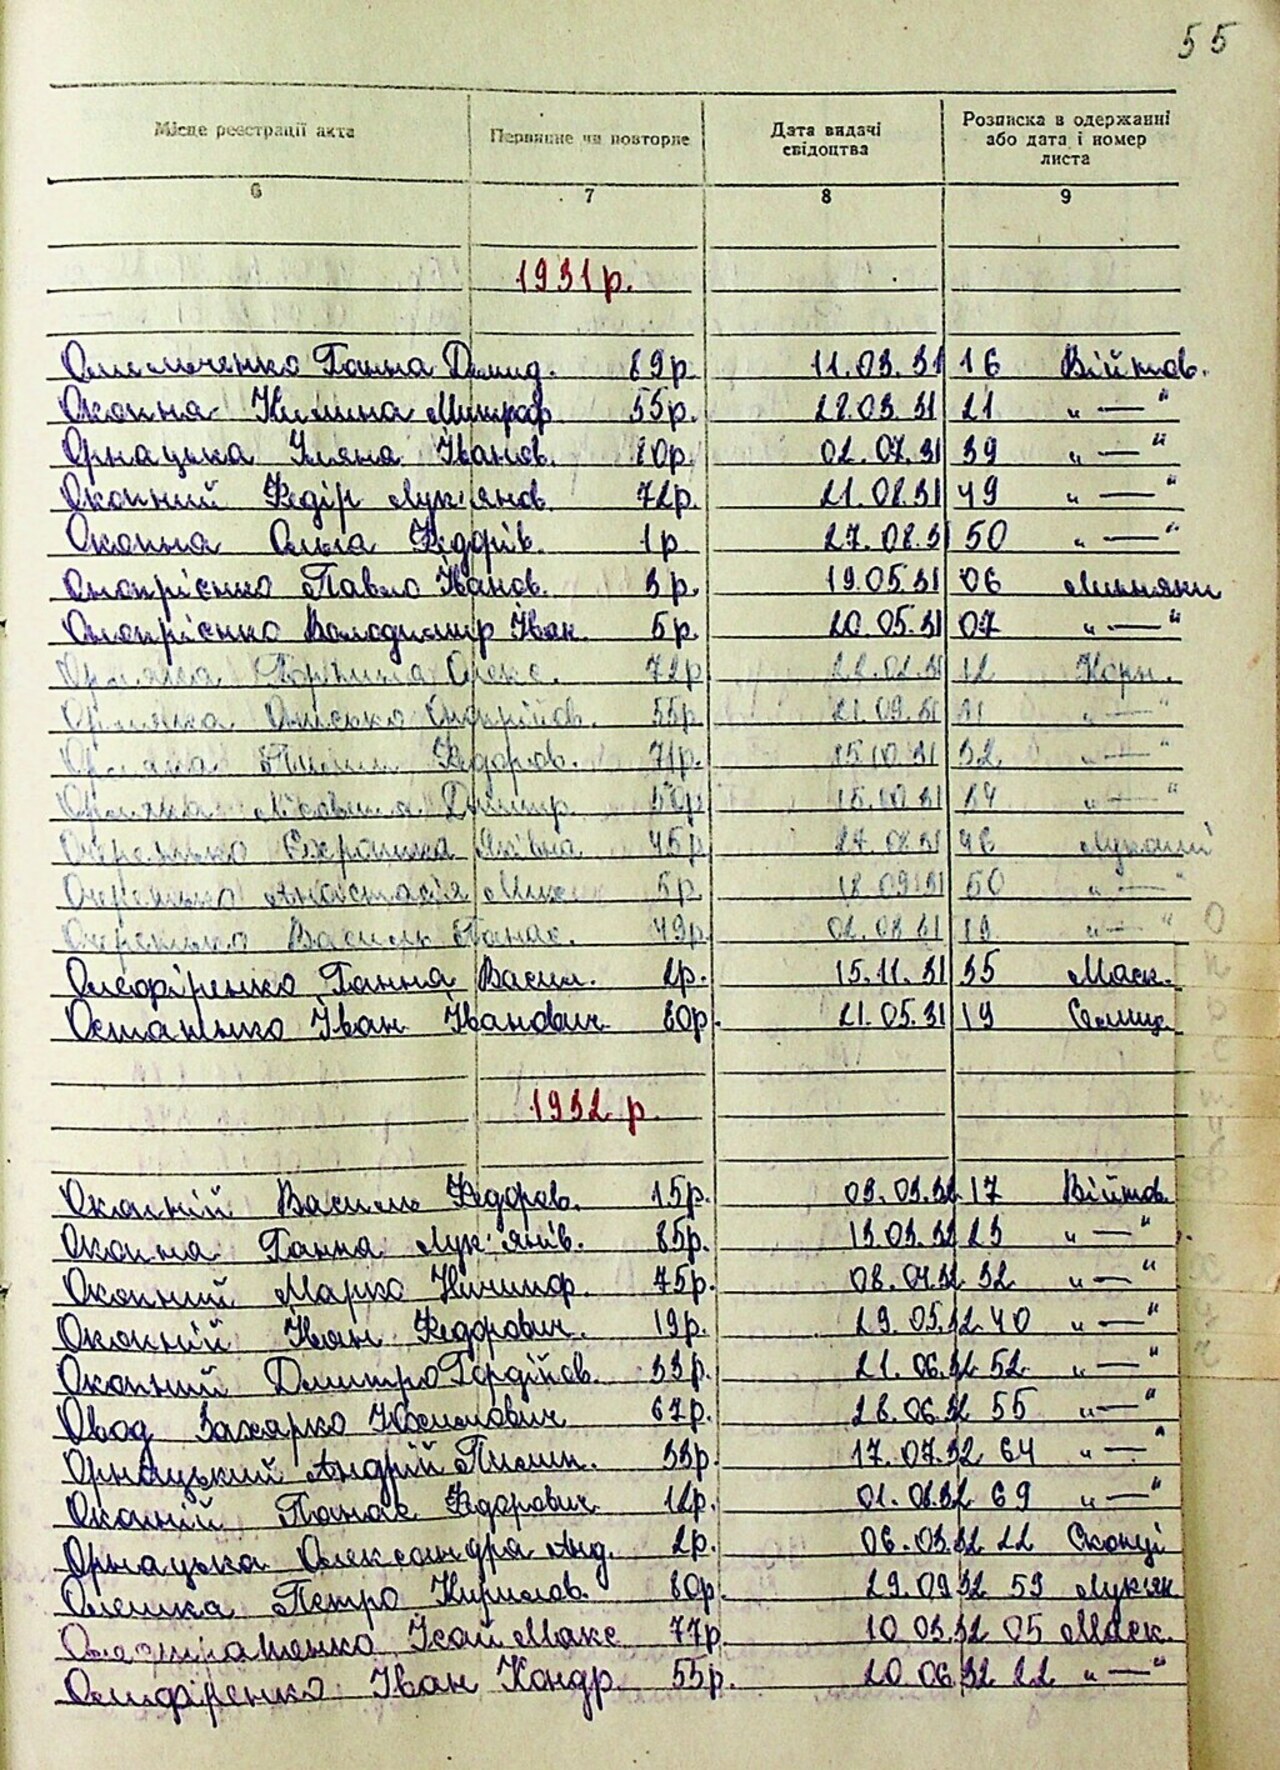 55
Місце реєстрації акта Первинне чи повторне Дата видачі свідоцтва Розписка в одержанні або дата і номер листа
6 7 8 9
1931р.
Омельченко Ганна Демид. 89р. 11.03.31 16 Війтов.
Окопна Килина Митроф. 55р. 28.03.31 21 „—“
Орнацька Уляна Іванов. 80р. 02.07.31 39 „—“
Окопний Федір Лук'янов. 72р. 21.08.31 49 „—“
Окопна Ольга Федорів. 1р. 27.08.31 50 „—“
Онопрієнко Павло Іванов. 3р. 19.05.31 06
Онопрієнко Володимир Іван. 5р. 20.05.31 07 „—“
Олекс. 72р. 22.02.31 12 Корн.
Онисько Онопрійов. 55р. 21.09.31 31 „—“
Пилип Федоров. 71р. 15.10.31 32 „—“
Дмитр. 15.10.31 34 „—“
Очеретько Яківна 45р. 27.08.31 46
Очеретько Анастасія 5р. 18.09.31 50 „—“
Очеретько Василь Панас. 49р. 02.08.31 19 „—“
Олефіренко Ганна Васил. 2р. 15.11.31 35 Маск.
Остапенко Іван Іванович 80р. 21.05.31 19
1932 р.
Окопній Василь Федоров. 15р. 03.03.32 17 Війтов.
Окопна Ганна Лук'янів. 85р. 13.03.32 23 „—“
Окопний Марко Ничипор. 75р. 08.04.32 32 „—“
Окопній Іван Федорович. 19р. 29.05.32 40 „—“
Окопний Дмитро Гордійов. 33р. 21.06.32 52 „—“
Овод Захарко Юхимович 67р. 28.06.32 55 „—“
Орнацький Андрій Пилип. 33р. 17.07.32 64 „—“
Окопній Панас Федорович 12р. 01.08.32 69 „—“
Орнацька Олександра Анд. 2р. 06.03.32 22
Олешка Петро Кирилов. 80р. 29.09.32 59 Лук'ян
Ісай Макс 77р. 10 03.32 05 Маск.
Олифіренко Іван Кондр. 55р. 20 06.32 22 „—“